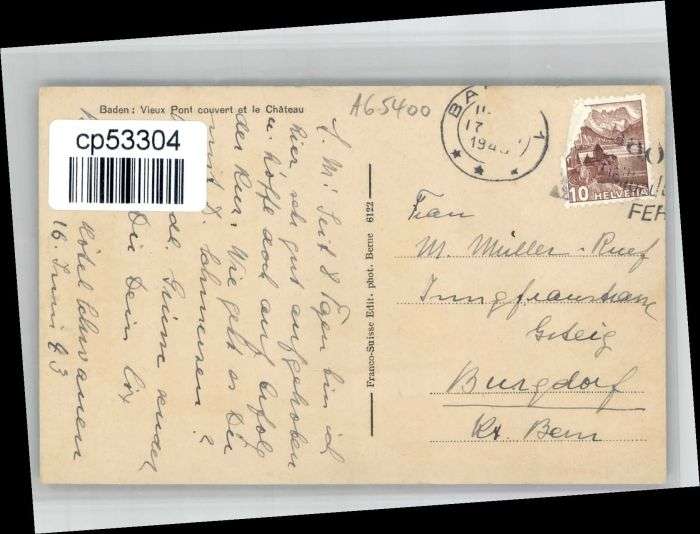 Baden: Vieux Pont couvert et le Château
AG-5400
cp53304
BA
17
194
1
10 HELVETIA
FER
Franco-Suisse Edit. phot. Berne 6122
L. M! Seit 8 Tagen bin ich
hier, sehr gut aufgehoben
u. hoffe auch auf Erfolg
der Kur. Wie geht es Dir
mit d. Schmerzen?
Grüsse
Dir Dein
Hôtel Schwanen
16. Juni 43
Frau
M. Müller-Ruef
Jungfraustrasse
Gsteig
Burgdorf
Kt. Bern